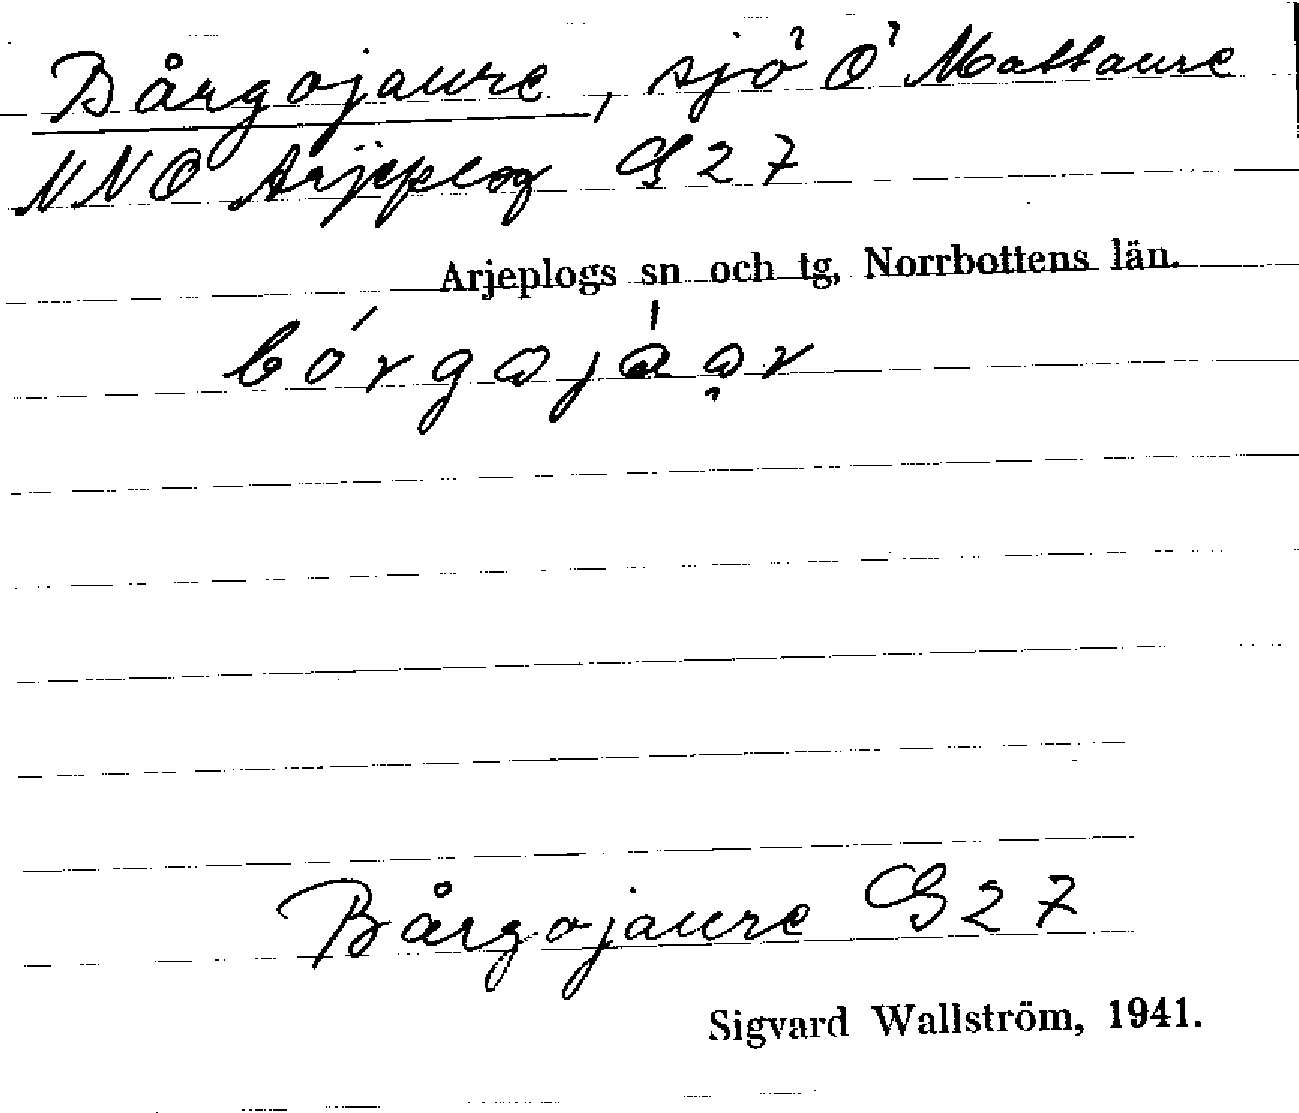 Bårgojaure, sjö Ö Mattaure
NNO Arjeplog G27
Arjeplogs sn och tg, Norrbottens län.
Bårgojaure G27
Sigvard Wallström, 1941.